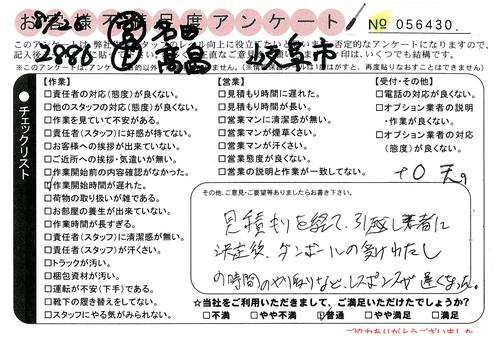 お客様不満足度アンケート
№ 056430.
8/26
2986
名古
高畠
岐阜市
チェックリスト
【作業】
□責任者の対応(態度)が良くない。
□他のスタッフの対応(態度)が良くない。
□作業を見ていて不安がある。
□責任者(スタッフ)に好感が持てない。
□お客様への挨拶が出来ていない。
□ご近所への挨拶・気遣いが無い。
□作業開始前の内容確認がなかった。
□作業開始時間が遅れた。
□荷物の取り扱いが雑である。
□お部屋の養生が出来ていない。
□作業時間が長すぎる。
□責任者(スタッフ)に清潔感が無い。
□責任者(スタッフ)が汗くさい。
□トラックが汚い。
□梱包資材が汚い。
□運転が不安(下手)である。
□靴下の履き替えをしてない。
□スタッフにやる気がみられない。
【営業】
□見積もり時間に遅れた。
□見積もり時間が長い。
□営業マンに清潔感が無い。
□営業マンが煙草くさい。
□営業マンが汗くさい。
□営業態度が良くない。
□営業の説明と作業が一致してない。
【受付・その他】
□電話の対応が良くない。
□オプション業者の説明
・作業が良くない。
□オプション業者の対応
(態度)が良くない。
その他、ご意見・ご要望等ありましたらお書き下さい。
見積もりを経て、引越し業者に
決定後、ダンボールの受けわたし
の時間のやり取りなど、レスポンスが遅くなった。
☆当社をご利用いただきまして、ご満足いただけたでしょうか?
□不満 □やや不満 □普通 □やや満足 □満足
ご協力ありがとうございました